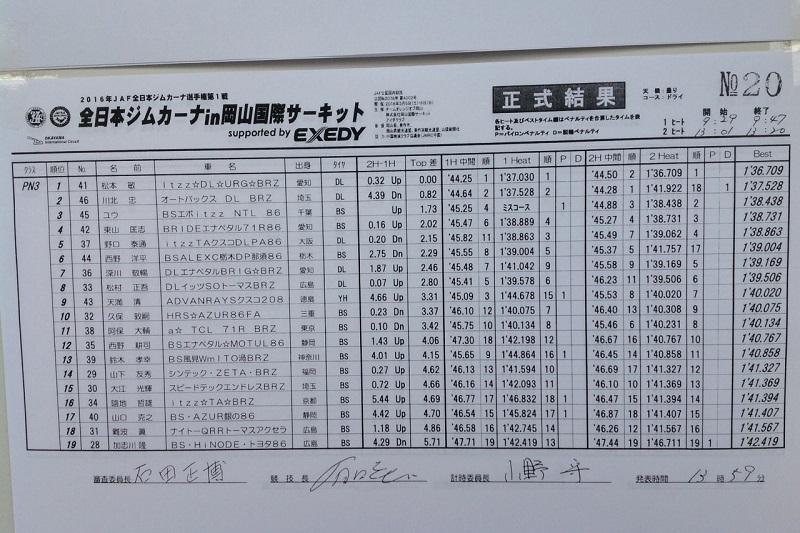 2016年JAF全日本ジムカーナ選手権第1戦
全日本ジムカーナin岡山国際サーキット
supported by EXEDY
OKAYAMA International Circuit
正式結果
各ヒート及びベストタイム順はペナルティを合算したタイムを表記する。
P=パイロンペナルティ D=脱輪ペナルティ
天候:曇り
コース:ドライ
No 20
開始 終了
1ヒート 9:29 9:47
2ヒート 13:01 13:20
クラス 順位 No 名前 車名 出身 タイヤ 2H-1H Top差 1H中間 順 1 Heat 順 P D 2H中間 順 2 Heat 順 P D Best
PN3 1 41 松本 敏 Itzz☆DL☆URG☆BRZ 愛知 DL 0.32 Up 0.00 '44.25 1 1'37.030 1 '44.50 2 1'36.709 1 1'36.709
2 46 川北 忠 オートバックス DL BRZ 埼玉 DL 4.39 Dn 0.82 '44.64 2 1'37.528 2 '44.28 1 1'41.922 18 1 1'37.528
3 45 ユウ BSエボitzz NTL 86 千葉 BS Up 1.73 '45.25 4 ミスコース 1 '44.88 3 1'38.438 2 1'38.438
4 42 東山 匡志 BRIDEエナペタル71R86 愛知 BS 0.16 Up 2.02 '45.47 6 1'38.889 4 '45.27 4 1'38.731 3 1'38.731
5 37 野口 泰通 itzzTAクスコDLPA86 大阪 DL 0.20 Dn 2.15 '45.82 11 1'38.863 3 '45.49 7 1'39.062 4 1'38.863
6 44 西野 洋平 BSALEXC栃木DP那須86 栃木 BS 2.75 Dn 2.29 '45.55 8 1'39.004 5 '45.37 5 1'41.757 17 1'39.004
7 36 深川 敬暢 DLエナペタルBRIG☆BRZ 愛知 DL 1.87 Up 2.46 '45.48 7 1'41.042 9 '45.58 9 1'39.169 5 1'39.169
8 33 松村 正吾 DLイッツSOトーマスBRZ 広島 DL 0.07 Up 2.80 '45.41 5 1'39.578 6 '46.23 11 1'39.506 6 1'39.506
9 43 天満 清 ADVANRAYSクスコ208 徳島 YH 4.66 Up 3.31 '45.09 3 1'44.678 15 1 '45.53 8 1'40.020 7 1'40.020
10 32 久保 敦嗣 HRS☆AZUR86FA 三重 BS 0.23 Dn 3.37 '46.10 12 1'40.075 7 '46.40 13 1'40.308 9 1'40.075
11 38 阿保 大輔 a☆ TCL 71R BRZ 東京 BS 0.10 Dn 3.42 '45.75 10 1'40.134 8 '45.46 6 1'40.231 8 1'40.134
12 35 西野 耕司 BSエナペタル☆MOTUL86 静岡 BS 1.43 Up 4.06 '47.30 18 1'42.198 12 '46.67 16 1'40.767 10 1'40.767
13 39 鈴木 孝幸 BS風見WmITO渦BRZ 神奈川 BS 4.01 Up 4.15 '45.65 9 1'44.864 16 1 '46.45 14 1'40.858 11 1'40.858
14 29 山下 友秀 シンテック・ZETA・BRZ 福岡 BS 0.27 Up 4.62 '46.13 14 1'41.594 10 '46.69 17 1'41.327 12 1'41.327
15 30 大江 光輝 スピードテックエンドレスBRZ 埼玉 BS 0.72 Up 4.66 '46.16 14 1'42.093 11 '46.10 10 1'41.369 13 1'41.369
16 34 隠地 哲雄 itzz☆TA☆BRZ 京都 BS 5.44 Up 4.69 '46.77 17 1'46.832 18 1 '46.65 15 1'41.394 14 1'41.394
17 40 山口 克之 BS・AZUR銀の86 静岡 BS 4.42 Up 4.70 '46.54 15 1'45.824 17 1 '46.87 18 1'41.407 15 1'41.407
18 31 難波 眞 ナイトーQRRトーマスアクセラ 広島 BS 1.18 Up 4.86 '46.58 16 1'42.745 14 '46.26 12 1'41.567 16 1'41.567
19 28 加志川 隆 BS・HiNODE・トヨタ86 広島 BS 4.29 Dn 5.71 '47.71 19 1'42.419 13 '47.44 19 1'46.711 19 1 1'42.419
審査委員長 石田正博 競技長 計時委員長 小野 守 発表時間 13時59分